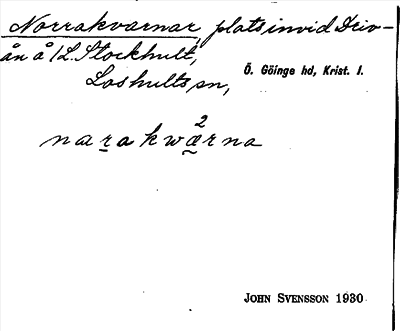 Norrakvarnar, plats invid Driv-
ån å /L. Stockhult,
Loshults sn,
Ö. Göinge hd, Krist. l.
2
narakwærna
JOHN SVENSSON 1930